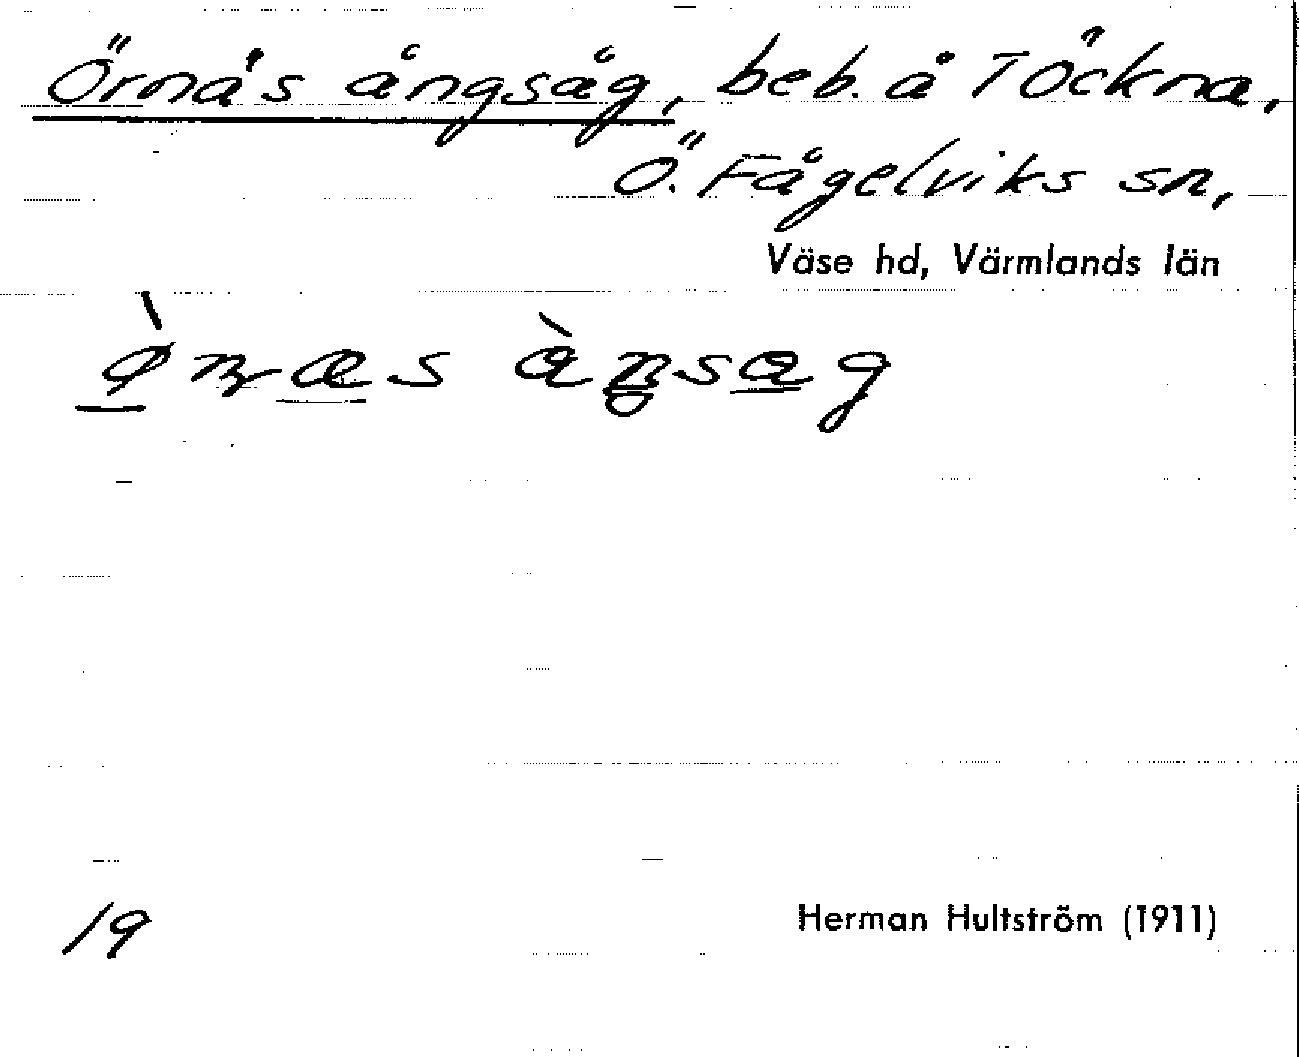 Örnäs ångsåg, beb. å Töckna,
Ö. Fågelviks sn,
Väse hd, Värmlands län
19
Herman Hultström (1911)